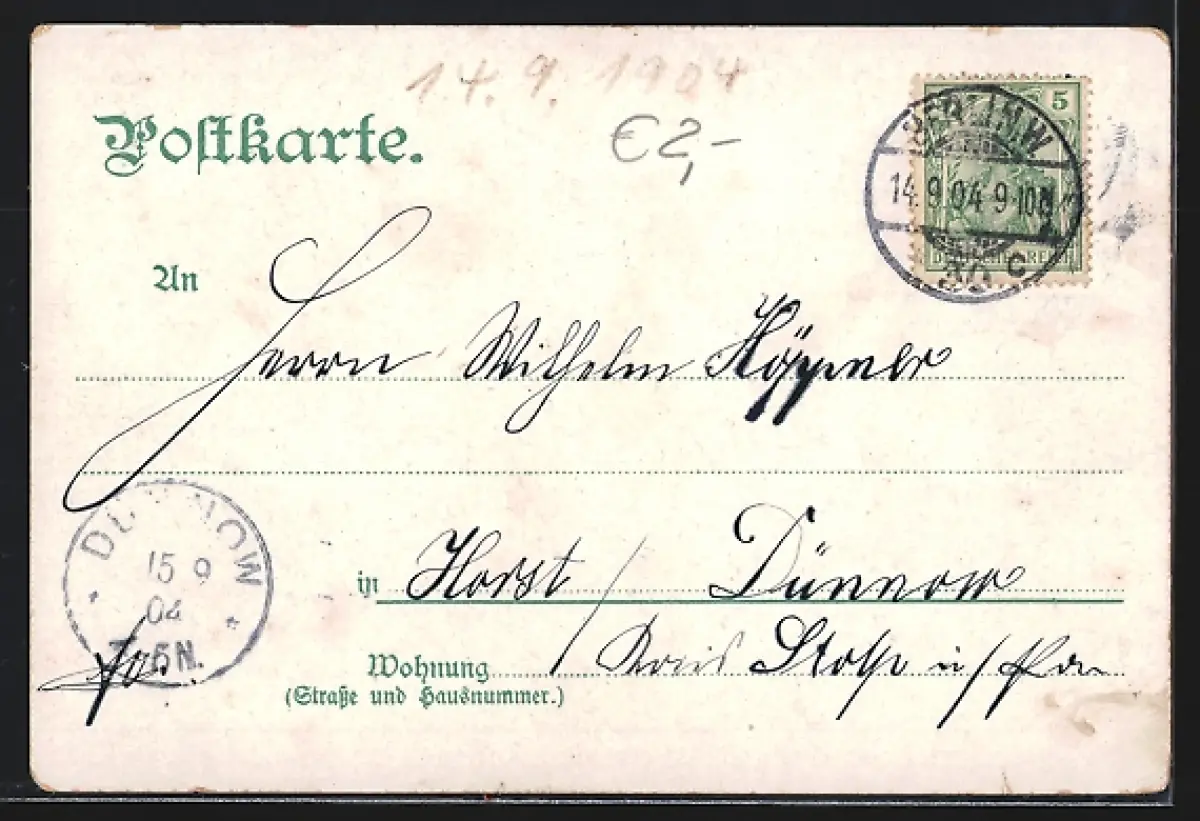 14.9.1904
Postkarte.
€2,-
5
BERLIN.W.
14.9.04 9-10N
30 c
DEUTSCHES REICH
An
Herrn Wilhelm Höppner
DÜNNOW
15 9
04
N.
in Horst / Dünnow
Wohnung Kreis Stolp i/Pom
(Straße und Hausnummer.)